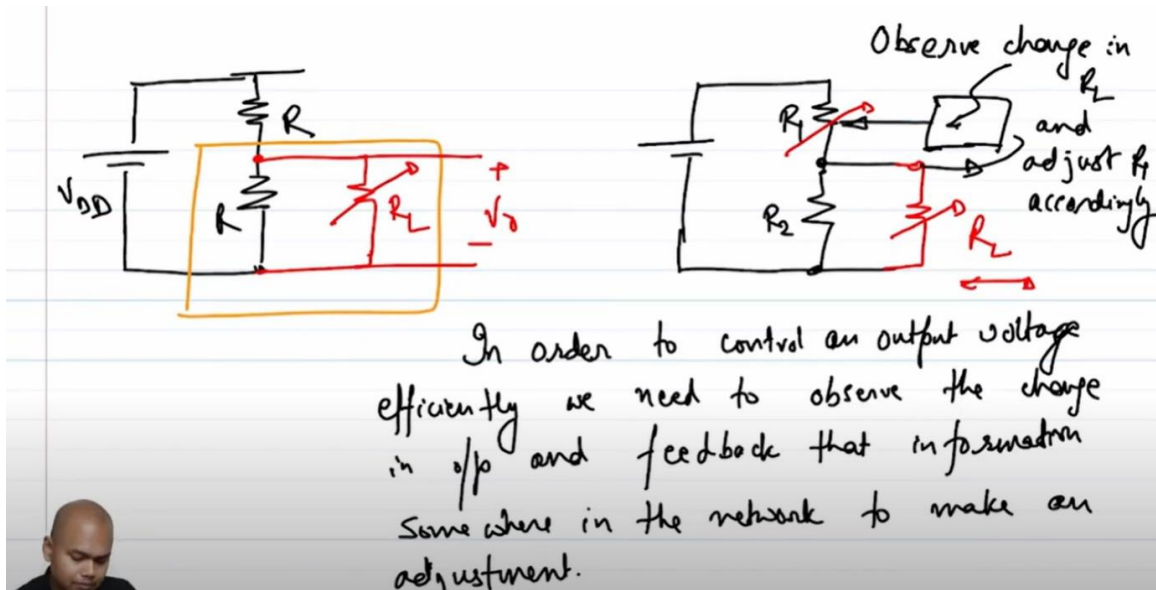 R
V_DD
R
R_L
+
V_0
−
Observe change in
R_L
and
adjust R_1
accordingly
R_1
R_2
R_L
In order to control an output voltage
efficiently we need to observe the change
in o/p and feedback that information
Some where in the network to make an
adjustment.